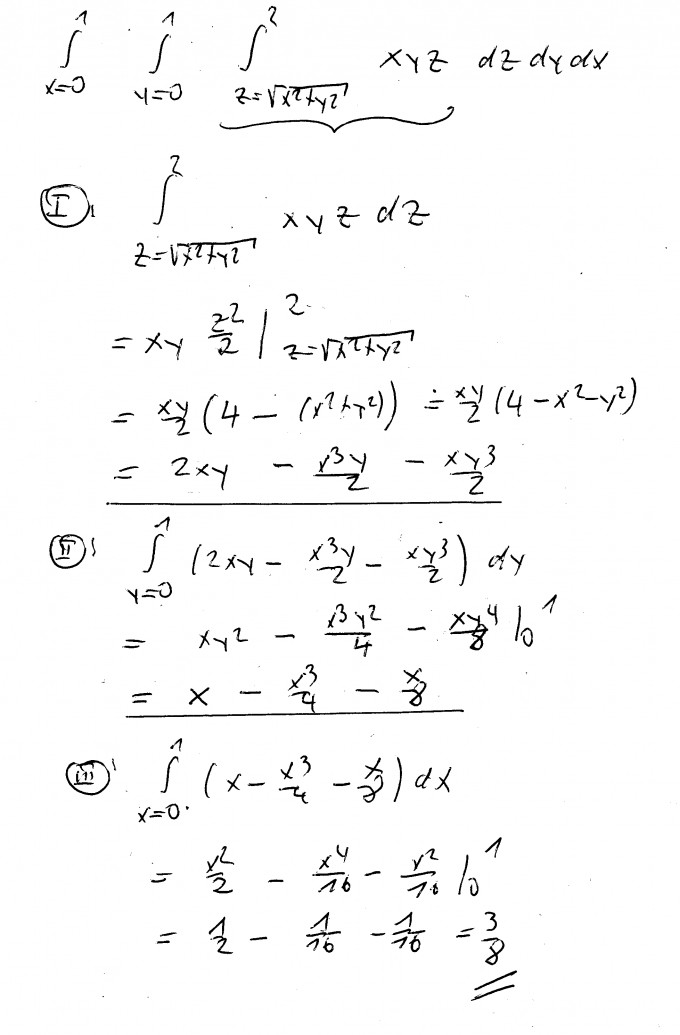 ∫_{x=0}^{1} ∫_{y=0}^{1} ∫_{z=√(x²+y²)}^{2} xyz dz dy dx
I, ∫_{z=√(x²+y²)}^{2} xyz dz
= xy z²/2 |_{z=√(x²+y²)}^{2}
= xy/2 (4 − (x²+y²)) = xy/2 (4−x²−y²)
= 2xy − x³y/2 − xy³/2
II, ∫_{y=0}^{1} (2xy − x³y/2 − xy³/2) dy
= xy² − x³y²/4 − xy⁴/8 |_0^1
= x − x³/4 − x/8
III, ∫_{x=0}^{1} (x − x³/4 − x/8) dx
= x²/2 − x⁴/16 − x²/16 |_0^1
= 1/2 − 1/16 − 1/16 = 3/8